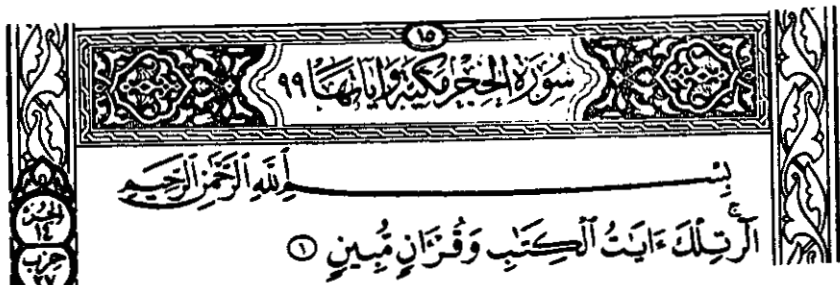 ١٥
سُورَةُ الحِجْرِ مَكِّيَّةٌ وَآيَاتُهَا ٩٩
بِسْمِ ٱللَّهِ ٱلرَّحْمَٰنِ ٱلرَّحِيمِ
الٓرۚ تِلْكَ ءَايَٰتُ ٱلْكِتَٰبِ وَقُرْءَانٍ مُّبِينٍ ١
الجزء
١٤
حزب
٢٧